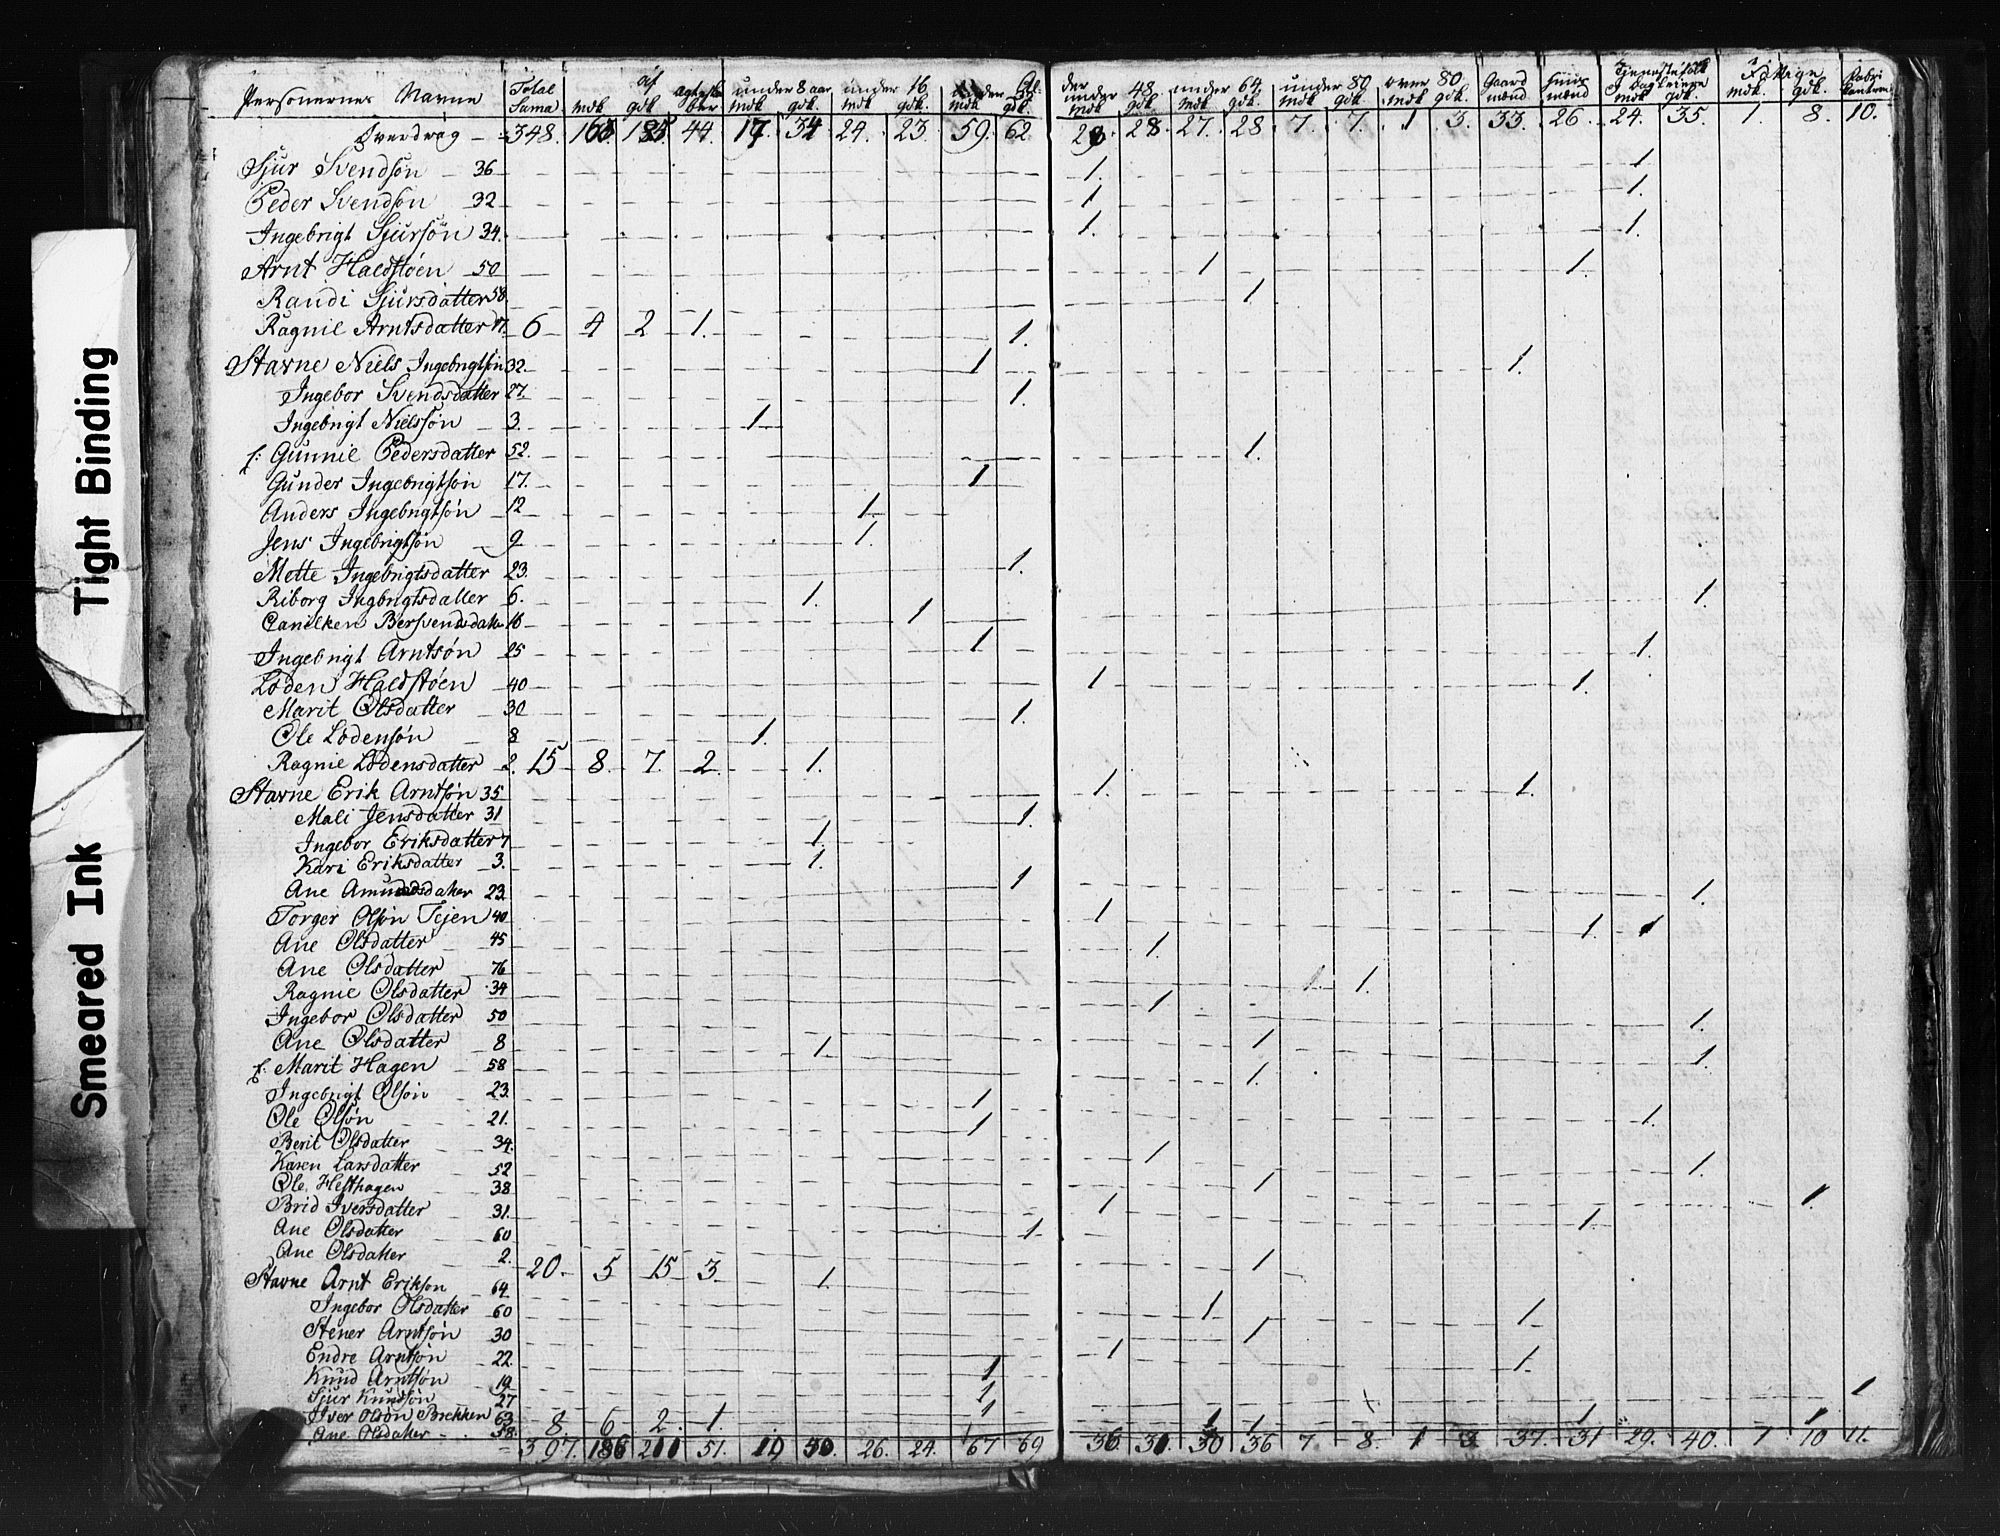 Tight Binding
Smeared Ink
Personernes Navne Total Suma af mdk gdk ægteskaber under 8 aar mdk gdk. under 16 mdk gdk. mdk gdk. under 48 mdk gdk under 64 mdk gdk. under 80 mdk gdk. over 80 mdk gdk. Gaard mænd Huus mænd Tjenestefolk mdk gdk. Fattige mdk. gdk.
Overdrag 348. 44. 17. 34 24. 23. 59. 62. 28. 27. 28 7. 7. 1 3. 33. 26. 24. 35. 1. 8. 10.
Sjur Svendsøn 36 1. 1.
Peder Svendsøn 32 1 1.
Ingebrigt Sjursøn 34. 1. 1.
Arnt Haldstøen 50 1 1.
Randi Sjursdatter 58. 1.
Ragnil Arntsdatter 17. 6 4 2 1. 1.
Stavne Niels Ingebrigtsøn 32 1 1.
Ingebor Svendsdatter 27. 1.
Ingebrigt Nielssøn 3. 1.
f: Gunnil Pedersdatter 52. 1.
Gunder Ingebrigtsøn 17. 1
Anders Ingebrigtsøn 12 1.
Jens Ingebrigtsøn 9 1.
Mette Ingebrigtsdatter 23. 1.
Riborg Ingbrigtsdatter 6. 1. 1.
Bersvendsdatr 1.
Ingebrigt Arntsøn 25 1 1.
Loden Haldstøen 40 1. 1.
Marit Olsdatter 30 1.
Ole Lodensøn 8 1.
Ragnil Lodensdatter 2. 15 8. 7. 2. 1.
Stavne Erik Arntsøn 35 1. 1.
Mali Jensdatter 31 1.
Ingebor Eriksdatter 7 1.
Kari Eriksdatter 3. 1.
Ane Amundsdatter 23 1 1.
Torger Olsøn Tejen 40 1. 1. 1
Ane Olsdatter 45 1.
Ane Olsdatter 76 1 1.
Ragnil Olsdatter 34 1.
Ingebor Olsdatter 50 1.
Ane Olsdatter 8 1. 1.
f: Marit Hagen 58 1. 1.
Ingebrigt Olsøn 23. 1.
Ole Olsøn 21. 1. 1.
Berit Olsdatter 34. 1.
Karen Larsdatter 52 1.
Ole Helthagen 38 1. 1.
Brid Iversdatter 31. 1.
Ane Olsdatter 60 1. 1.
Ane Olsdatter 2. 20. 5 15 3. 1. 1.
Stavne Arnt Eriksøn 64
Ingebor Olsdatter 60 1 1.
Stener Arntsøn 30 1.
Endre Arntsøn 22. 1 1.
Knud Arntsøn 19 1
Sjur Knudsøn 27 1 1
Iver Olsøn Brekken 63 8 6 2. 1. 1 1 1. 1. 1.
Ane Olsdatter 58.
397. 186 211 51. 19 50. 26. 24. 67 69 36. 31. 30 36 7 8. 1 3. 37. 31 29. 40. 1 10 11.